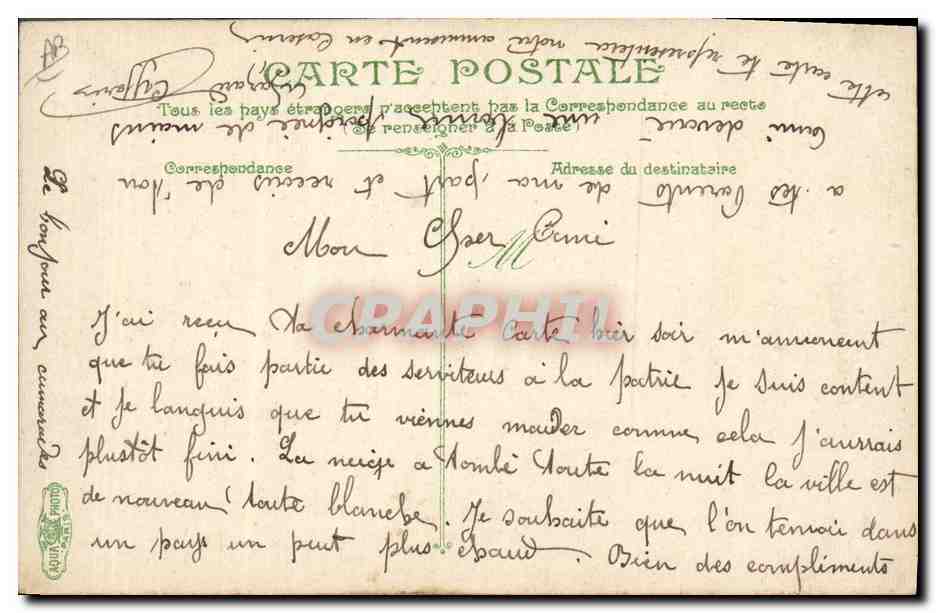 CARTE POSTALE
Tous les pays étrangers n'acceptent pas la Correspondance au recto
(Se renseigner à la Poste)
Correspondance
Adresse du destinataire
Mon Cher Ami
J'ai reçu ta charmante carte hier soir m'annoncent
que tu fais partie des serviteurs à la patrie je suis content
et je languis que tu viennes m'aider comme cela j'aurrais
plustôt fini. La neige a tombé toute la nuit la ville est
de nouveau toute blanche. Je souhaite que l'on t'envoi dans
un pays un peut plus chaud. Bien des compliments
a tes Parents de ma part et recois de ton
Ami devoué une bonne poignée de mains
cette carte te representera notre amusement en Caserne
Le bonjour au camarades
AQUA PHOTO
PARIS
CPAPHIL
AB